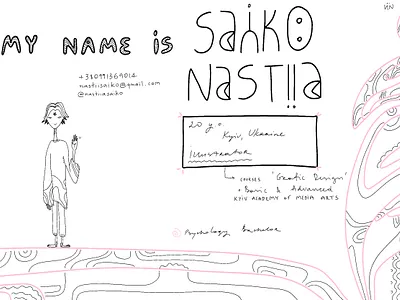 MY NAME iS
SAiKO
NASTiiA
nastiisaiko@gmail.com
@nastiiasaiko
20 y.o
Kyiv, Ukraine
Illustrator
COURSES "Grafic Design"
Basic & Advanced
KYIV ACADEMY OF MEDIA ARTS
Psychology Bachelor